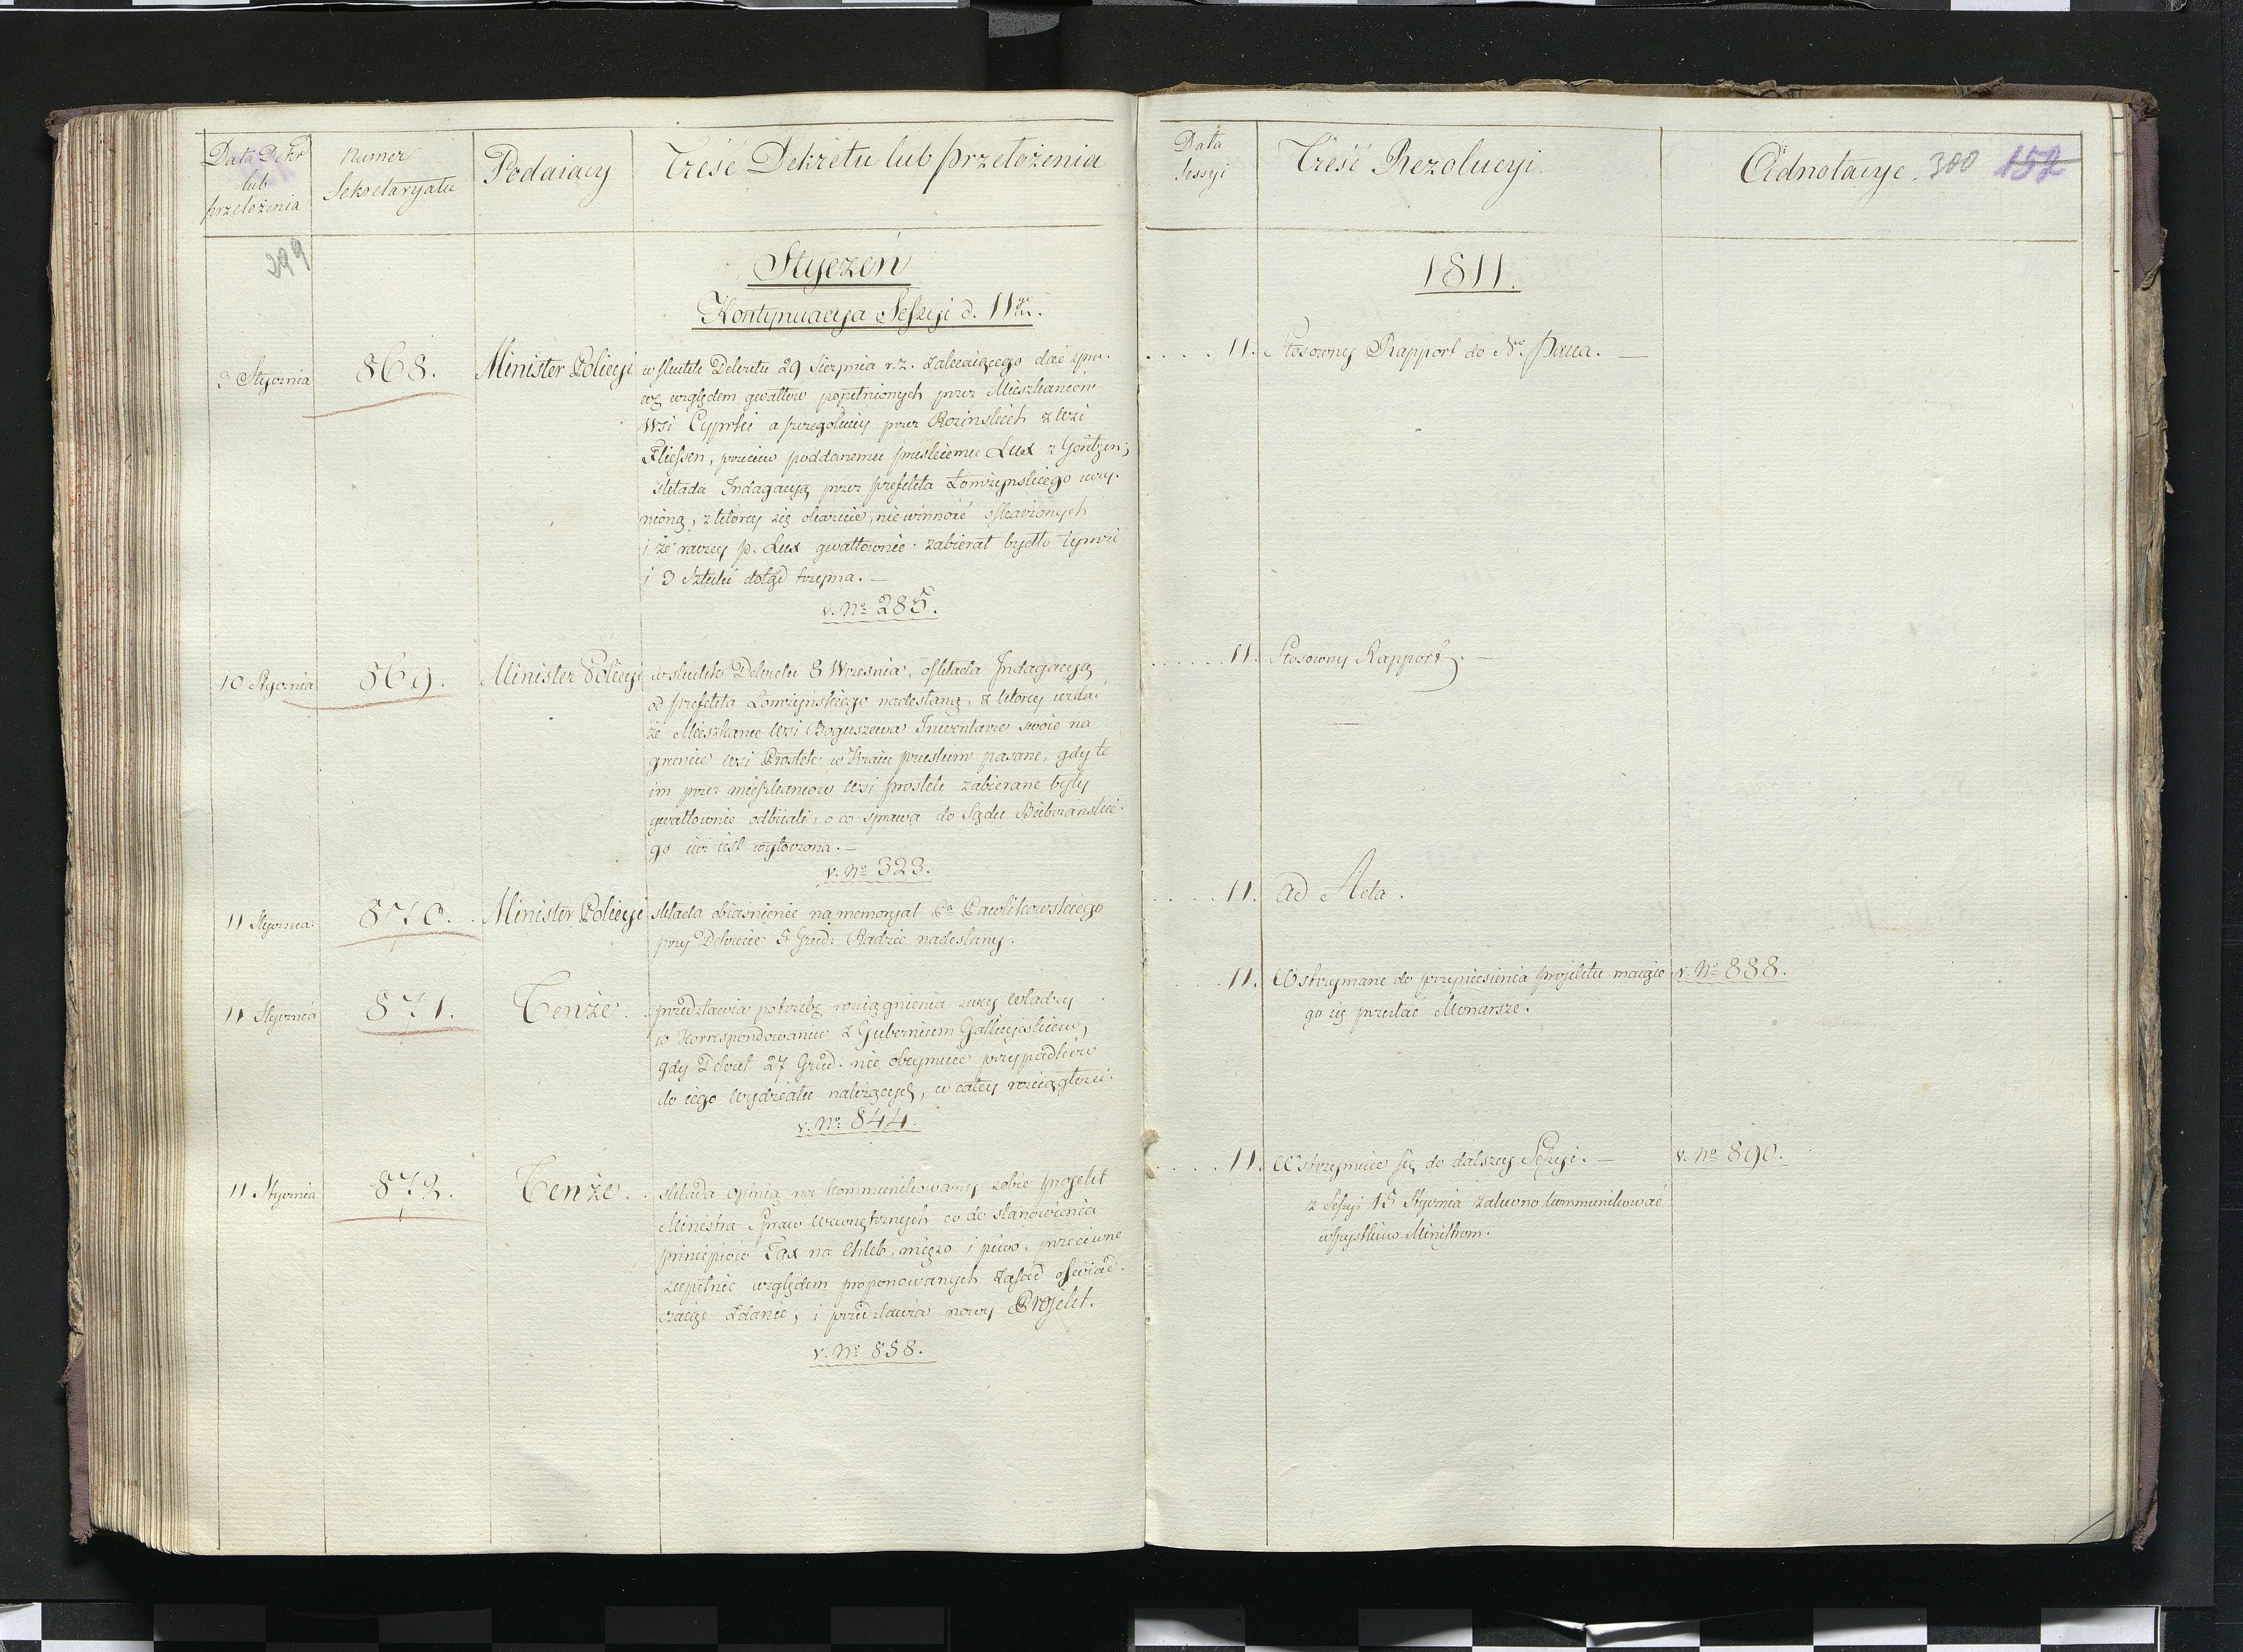 Data Dekr
lub
przełożenia
Numer
Sekretaryatu
Podaiący
Treść Dekretu lub przełożenia
Data
Sessyi
Treść Rezolucyi.
Adnotacye. 300 152
299
Styczeń
1811.
Kontynuacya Sessyi d. 11go
3 Stycznia
868.
Minister Policyi
w skutek Dekretu 29 Sierpnia r.z. zalecaiącego dać spra-
wę względem gwałtow popełnionych przez Mieszkańców
Wsi Cyprki a szczególniey przez Rozinskich z wsi
Fliessen, przeciw poddanemu pruskiemu Lux z Goritzen;
składa Indagacyą przez prefekta Łomżyńskiego uczy-
nioną, z którey się okazuie, niewinność oskarżonych
i że raczey p. Lux gwałtownie zabierał bydło tymże
i 3 sztuki dotąd trzyma. —
v. No 285.
. . . . 11.
Stosowny Rapport do No. Pana. —
10 Stycznia
869.
Minister Policyi
w skutek Dekretu 8 Września, składa Indagacyą
od prefekta Łomżyńskiego nadesłaną, z ktorey widać
że Mieszkańce wsi Boguszewa Inwentarze swoie na
gruncie wsi Prostek w Kraiu pruskim pasane, gdy te
im przez mieszkancow wsi prostek zabierane były
gwałtownie odbiiali, o co sprawa do Sądu Biebrzańskie-
go iuż iest wytoczona. —
v. No 323.
. . . . . 11.
Stosowny Rapport. —
11 Stycznia.
870.
Minister Policyi
składa obiaśnienie na memoryał Pa Pawlikowskiego
przy Dekrecie 5 Grud: Radzie nadesłany.
. . . . 11.
ad Acta.
11 Stycznia
871.
Tenże.
przedstawia potrzebę rościągnienia swey władzy
w Korrespondowaniu z Gubernium Gallicyiskiem,
gdy Dekret 27 Grud. nie obeymuie przypadków
do iego wydziału należących, w całey rościągłości.
v. No 844.
. . . 11.
Wstrzymane do przyniesienia projektu maiące-
go się przesłać Monarsze.
v. No 888.
11 Stycznia
872.
Tenże.
składa opinią na kommunikowany sobie projekt
Ministra Spraw Wewnętrznych co do stanowienia
principiów Tax na Chleb, mięso i piwo, przeciwne
zupełnie względem proponowanych zasad oświad-
czaiąc zdanie, i przedstawia nowy Projekt.
v. No 858.
. . . . 11.
Wstrzymuie się do dalszey Sessyi. —
z Sessyi 15 Stycznia zalecono kommunikować
wszystkim Ministrom.
v. No 890.